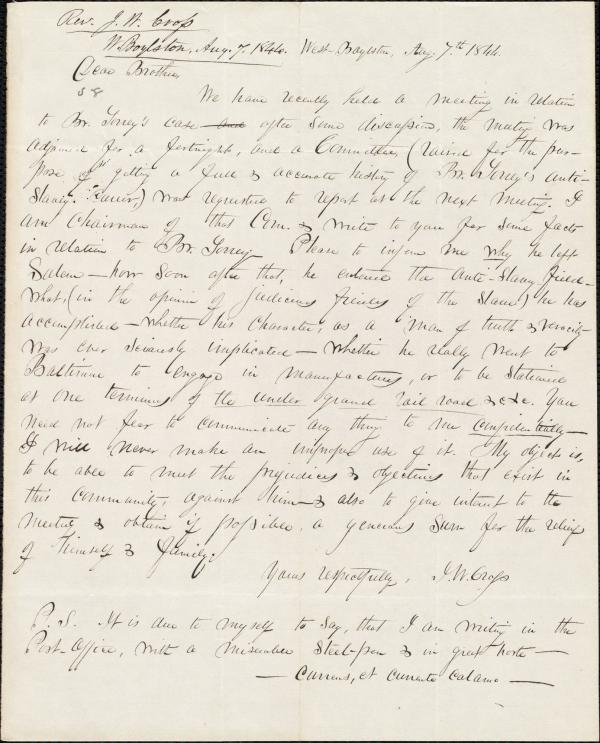 Rev. J. W. Cross
W. Boylston, Aug. 7. 1844. West Boylston, Aug. 7th 1844.
Dear Brother,
We have recently held a meeting in relation
to Br. Torrey's case after some discussion, the meeting was
adjourned for a fortnight, and a Committee, (raised for the pur-
pose of getting a full & accurate history of Br. Torrey's anti-
Slavery Career,) was requested to report at the next meeting. I
am Chairman of that Com. & write to you for some facts
in relation to Br. Torrey. Please to inform me why he left
Salem — how soon after that, he entered the Anti-Slavery field —
what, (in the opinion of judicious friends of the Slave) he has
accomplished — whether his character, as a man of truth & veracity
was ever seriously implicated — whether he really went to
Baltimore to engage in manufactures, or to be stationed
at one terminus of the under ground rail road &c &c. You
need not fear to communicate any thing to me confidentially —
I will never make an improper use of it. My object is,
to be able to meet the prejudices & objections that exist in
this community, against him — & also to give interest to the
meeting & obtain if possible, a generous sum for the relief
of himself & family.
Yours respectfully, J. W. Cross
P. S. It is due to myself to say, that I am writing in the
Post-Office, with a miserable Steel-pen & in great haste —
— currens, et currente calamo —